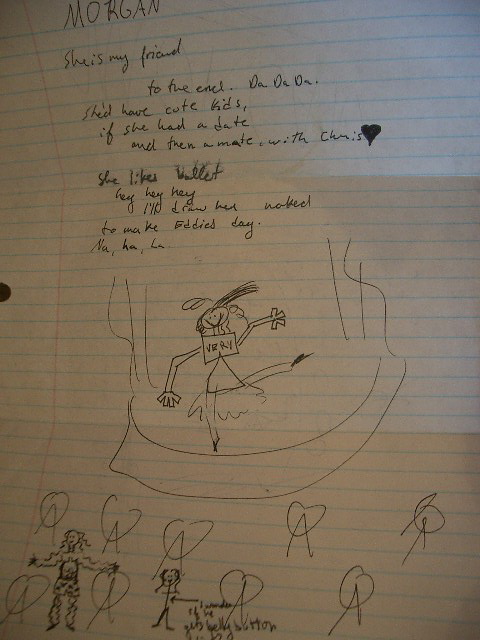 MORGAN
She is my friend
to the end. Da Da Da.
She'd have cute kids,
if she had a date
and then a mate, with Chris
She likes bullet
hey hey hey
I'll draw her naked
to make Eddies day.
Na, ha, La.
VERY
I wonder
if he
gets belly button